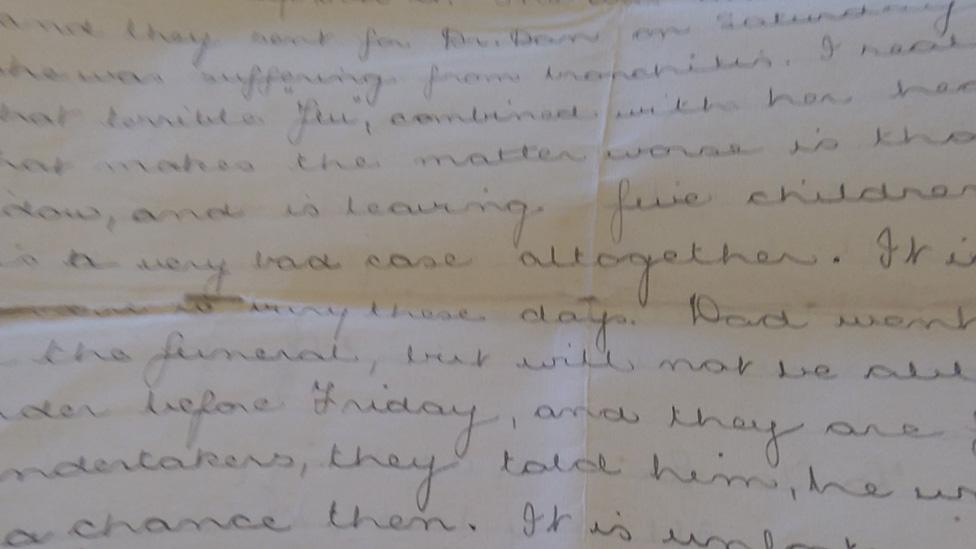 and they sent for Dr. Dan on Saturday
she was suffering from bronchitis. I real
hat terrible "Flu", combined with her hea
hat makes the matter worse is tha
idow, and is leaving five children
is a very bad case altogether. It i
very these days. Dad went
the funeral, but will not be abl
nder before Friday, and they are
ndertakers, they told him, he w
a chance then. It is unfort